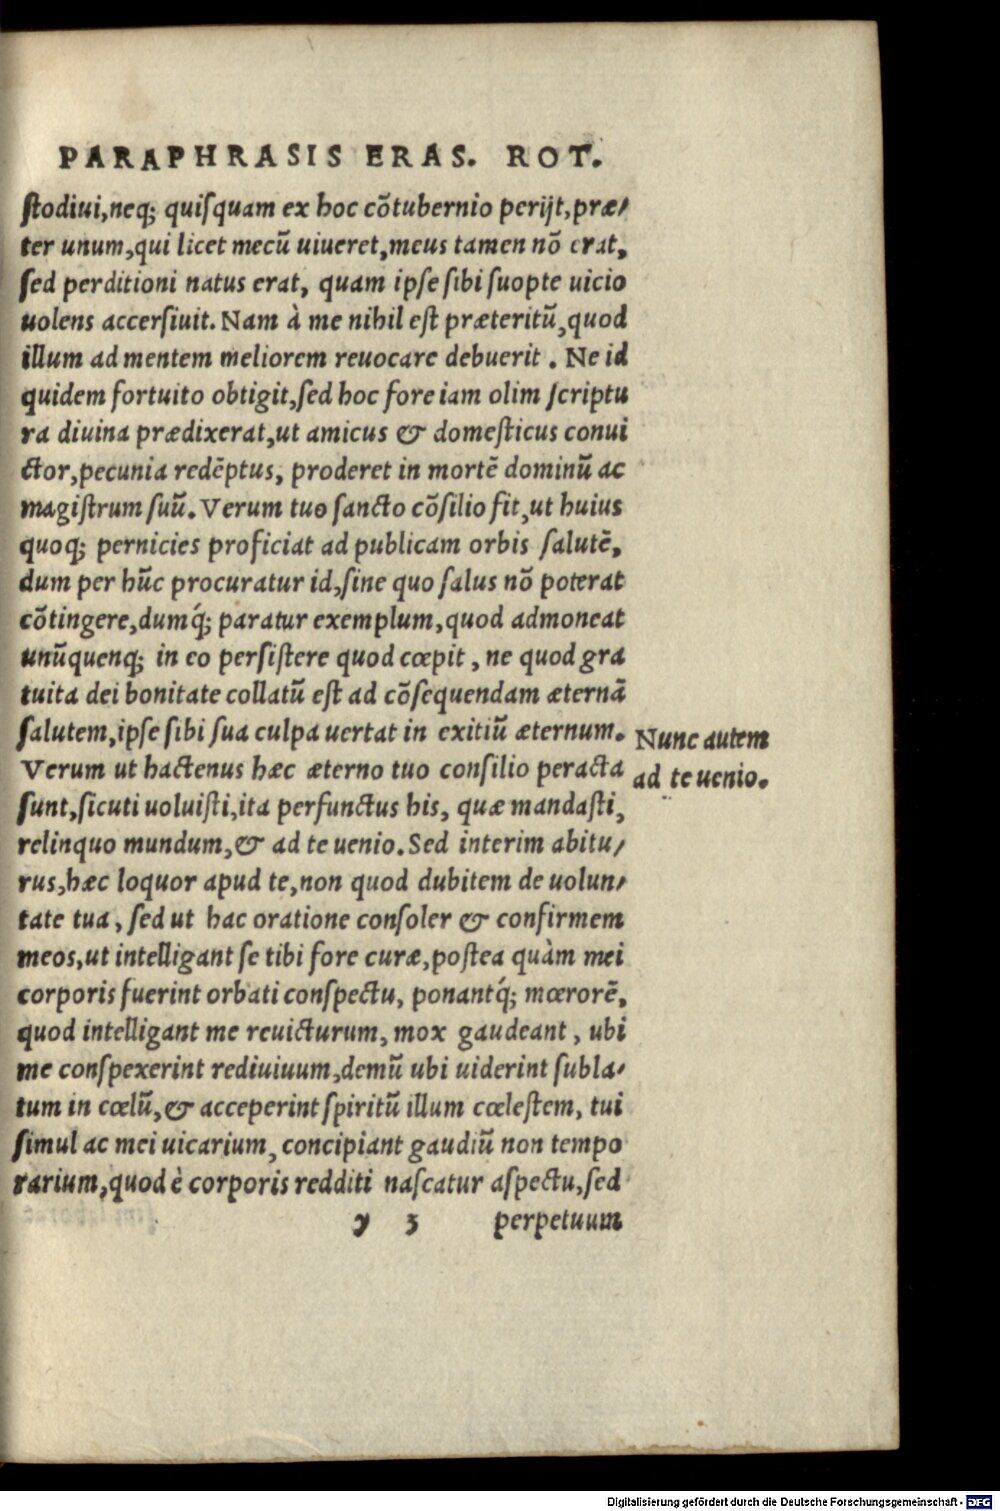 PARAPHRASIS ERAS. ROT.
ſtodiui,neq; quiſquam ex hoc cōtubernio perijt,præ/
ter unum,qui licet mecū uiueret,meus tamen nō erat,
ſed perditioni natus erat, quam ipſe ſibi ſuopte uicio
uolens accerſiuit. Nam à me nihil eſt præteritū,quod
illum ad mentem meliorem reuocare debuerit. Ne id
quidem fortuito obtigit,ſed hoc fore iam olim ſcriptu
ra diuina prædixerat,ut amicus & domeſticus conui
ctor,pecunia redēptus, proderet in mortē dominū ac
magiſtrum ſuū. Verum tuo ſancto cōſilio fit,ut huius
quoq; pernicies proficiat ad publicam orbis ſalutē,
dum per hūc procuratur id,ſine quo ſalus nō poterat
cōtingere,dumq́; paratur exemplum,quod admoneat
unūquenq; in eo perſiſtere quod cœpit, ne quod gra
tuita dei bonitate collatū eſt ad cōſequendam æternā
ſalutem,ipſe ſibi ſua culpa uertat in exitiū æternum.
Nunc autem
ad te uenio.
Verum ut hactenus hæc æterno tuo conſilio peracta
ſunt,ſicuti uoluiſti,ita perfunctus his, quæ mandaſti,
relinquo mundum,& ad te uenio. Sed interim abitu/
rus,hæc loquor apud te,non quod dubitem de uolun/
tate tua, ſed ut hac oratione conſoler & confirmem
meos,ut intelligant ſe tibi fore curæ,poſtea quàm mei
corporis fuerint orbati conſpectu, ponantq́; mœrorē,
quod intelligant me reuicturum, mox gaudeant, ubi
me conſpexerint rediuiuum,demū ubi uiderint ſubla/
tum in cœlū,& acceperint ſpiritū illum cœleſtem, tui
ſimul ac mei uicarium, concipiant gaudiū non tempo
rarium,quod è corporis redditi naſcatur aſpectu,ſed
y 3 perpetuum
Digitalisierung gefördert durch die Deutsche Forschungsgemeinschaft - DFG